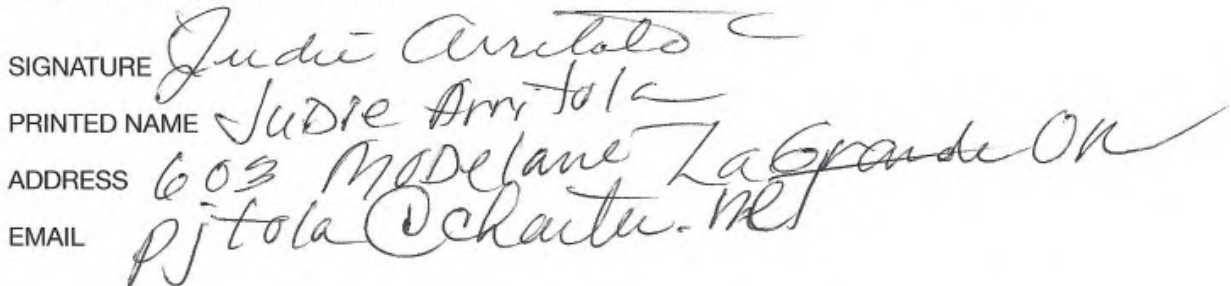 SIGNATURE Judie Arritola
PRINTED NAME JuDie Arritola
ADDRESS 603 MoDelane LaGrande OR
EMAIL pjtola@charter.net